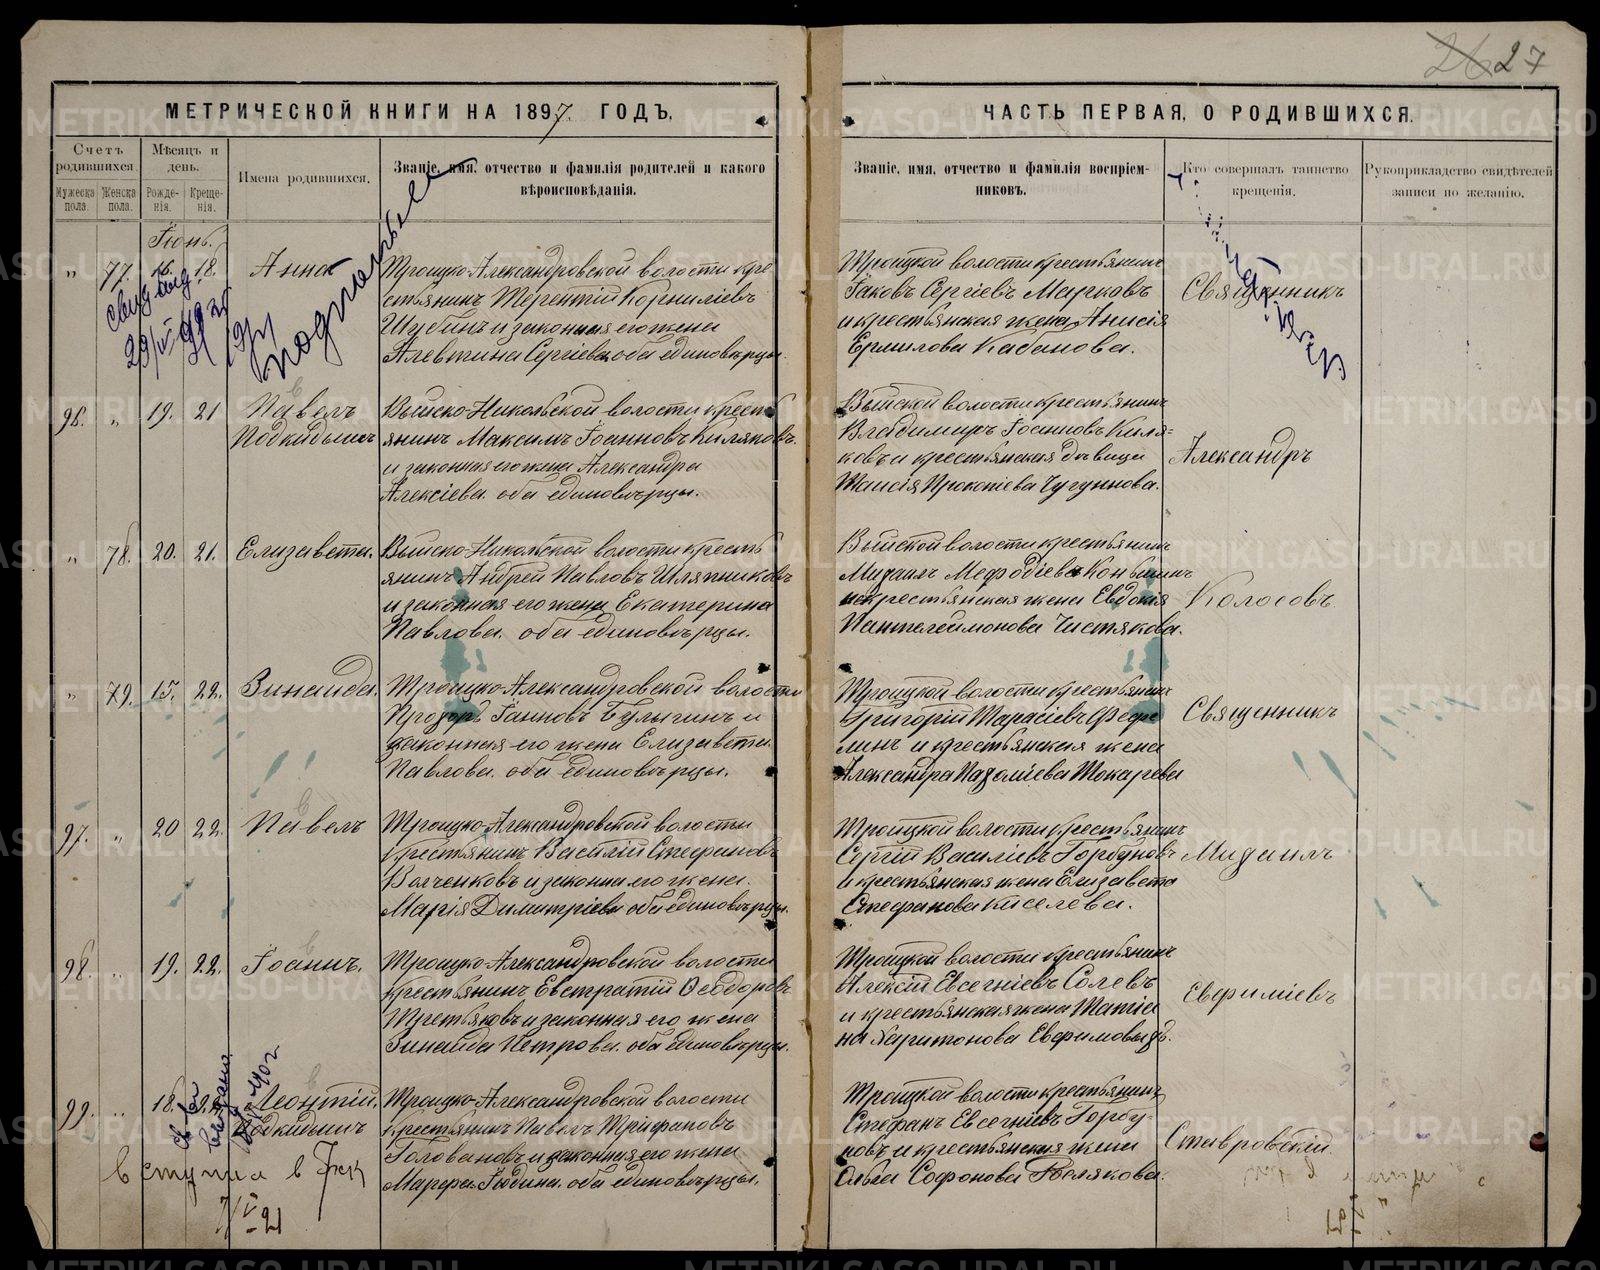 26 27
МЕТРИЧЕСКОЙ КНИГИ НА 1897 ГОДЪ,
Счетъ родившихся.
Мужеска пола.
Женска пола.
Мѣсяцъ и день.
Рожде- нія.
Креще- нія.
Имена родившихся.
Званіе, имя, отчество и фамилія родителей и какого
вѣроисповѣданія.
Іюнь.
" 77. 16. 18. Анна
Троицко-Александровской волости кре
стьянинъ Терентій Корниліевъ
Шубинъ и законная его жена
Алевтина Сергіева, оба единовѣрцы.
96. " 19. 21 Павелъ
Подкидышъ
Выйско-Никольской волости кресть
янинъ Максимъ Іоанновъ Киляковъ
и законная его жена Александра
Алексіева. оба единовѣрцы.
" 78. 20. 21. Елизавета.
Выйско-Никольской волости кресть
янинъ Андрей Павловъ Шляпниковъ
и законная его жена Екатерина
Павлова. оба единовѣрцы.
" 79. 15. 22. Зинаида.
Троицко-Александровской волости
Булыгинъ и
законная его жена Елизавета
Павлова. оба единовѣрцы.
97. " 20 22. Павелъ
Троицко-Александровской волости
крестьянинъ Василій Стефановъ
Волченковъ и законная его жена.
Марія Димитріева оба единовѣрцы.
98. " 19. 22. Іоаннъ.
Троицко-Александровской волости
крестьянинъ Евстратій Ѳеодоровъ
Третьяковъ и законная его жена
Зинаида Петрова. оба единовѣрцы.
99. " 18. 22. Леонтій.
Подкидышъ
Троицко-Александровской волости
крестьянинъ Павелъ Трифановъ
Головановъ и законная его жена
Марфа Іюдина. оба единовѣрцы.
ЧАСТЬ ПЕРВАЯ, О РОДИВШИХСЯ.
Званіе, имя, отчество и фамилія воспріем-
никовъ.
Кто совершалъ таинство
крещенія.
Рукоприкладство свидѣтелей
записи по желанію.
Троицкой волости крестьянинъ
Іаковъ Сергіевъ Марковъ
и крестьянская жена Анисія
Ермилова Кабанова.
Священникъ
Выйской волости крестьянинъ
Владимиръ Іоанновъ Киля=
ковъ и крестьянская дѣвица
Таисія Прокопіева Чугунова.
Александръ
Выйской волости крестьянинъ
Михаилъ Мефодіевъ
крестьянская жена Евдокія
Пантелеимонова Чистякова.
Колосовъ
Троицкой волости крестьянинъ
Григорій Тарасіевъ Фефе
линъ и крестьянская жена
Александра Токарева
Священникъ
Троицкой волости крестьянинъ
Сергій Василіевъ Горбуновъ
и крестьянская жена Елизавета
Стефанова Киселева.
Михаилъ
Троицкой волости крестьянинъ
Алексій Евсегніевъ Солевъ
и крестьянская жена Татіа
на Харитонова
Евфиміевъ
Троицкой волости крестьянинъ
Стефанъ Евсегніевъ Горбу-
новъ и крестьянская жена
Ольга Софонова Полякова.
Ставровскій.